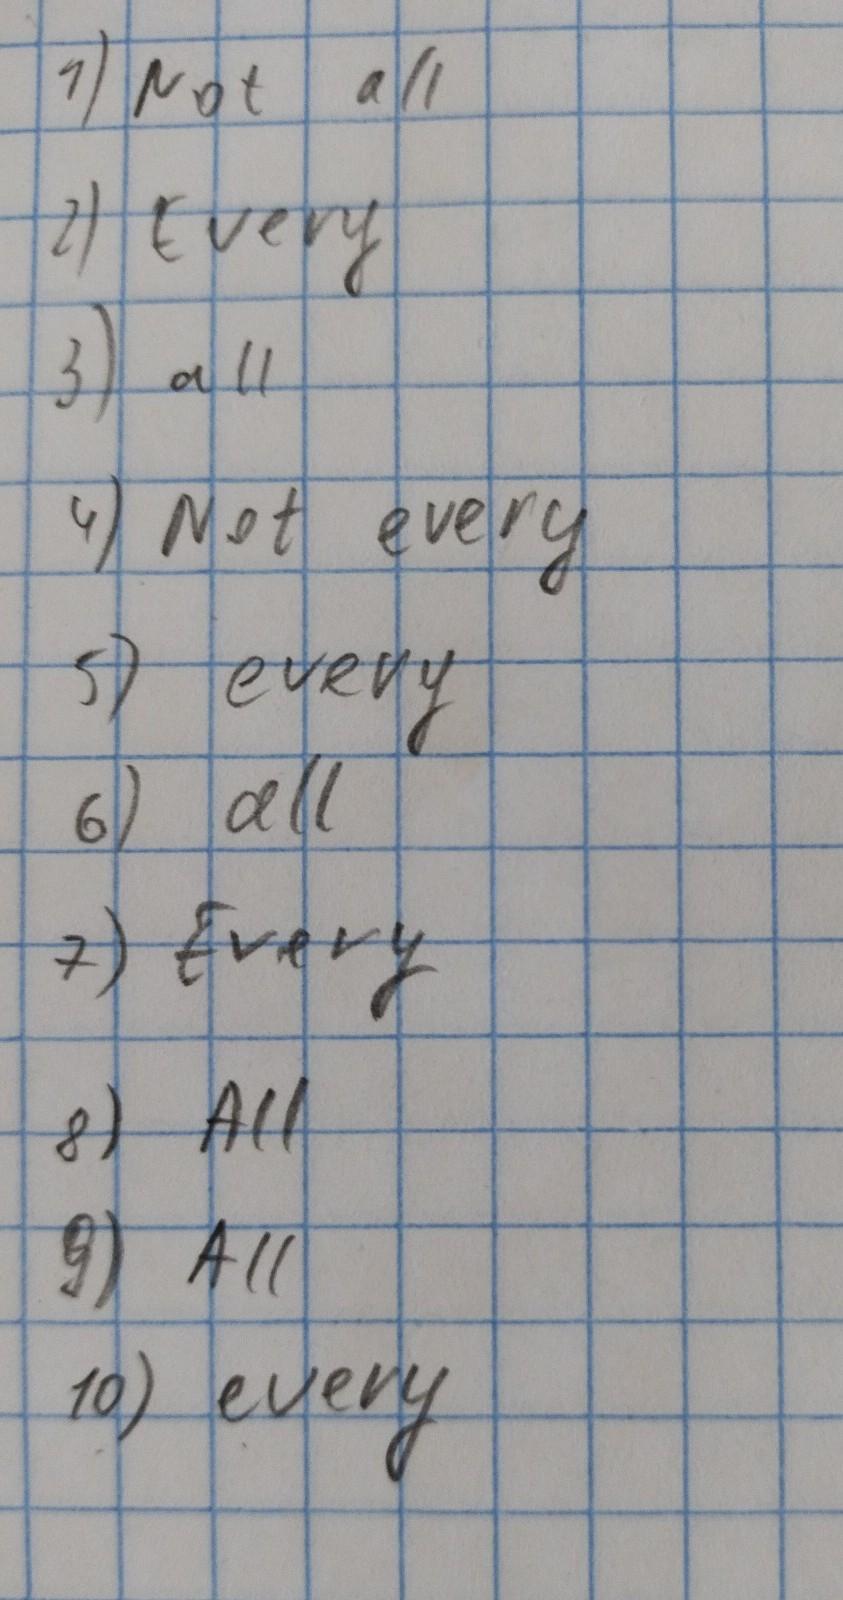 1) Not all
2) Every
3) all
4) Not every
5) every
6) all
7) Every
8) All
9) All
10) every